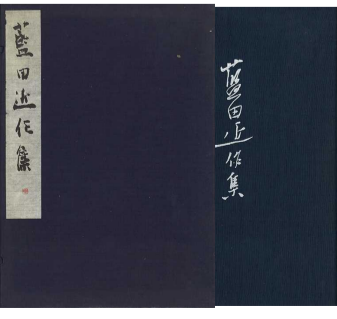 藍田近作集
藍田近作集